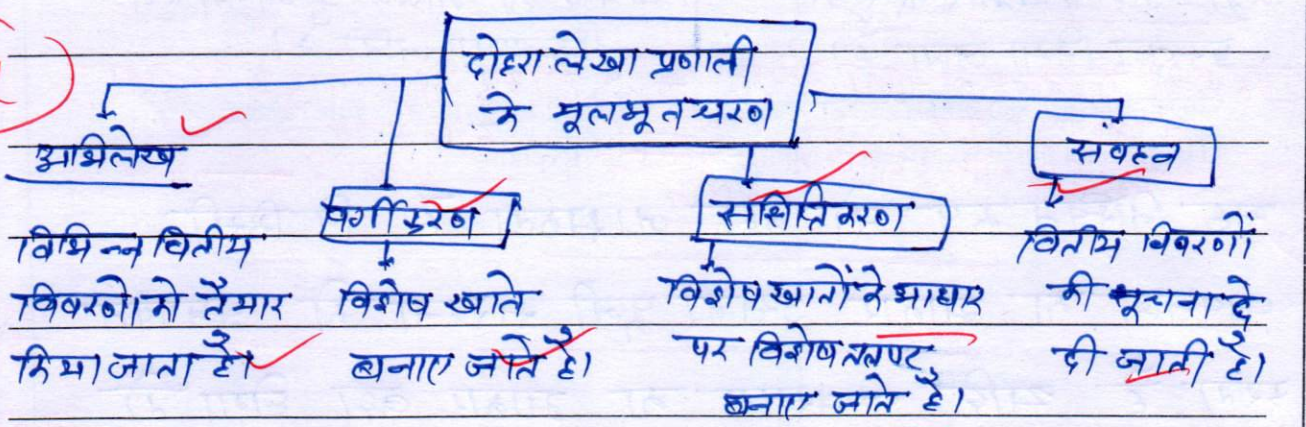 दोहरा लेखा प्रणाली
के मूलभूत चरण
अभिलेख
विभिन्न वितीय
विवरणों को तैयार
किया जाता है।
वर्गीकरण
विशेष खाते
बनाए जाते है।
संक्षिप्तिकरण
विशेष खातों के आधार
पर विशेष तलपट
बनाए जाते है।
संवहन
वितीय विवरणों
की सूचना दे
दी जाती है।